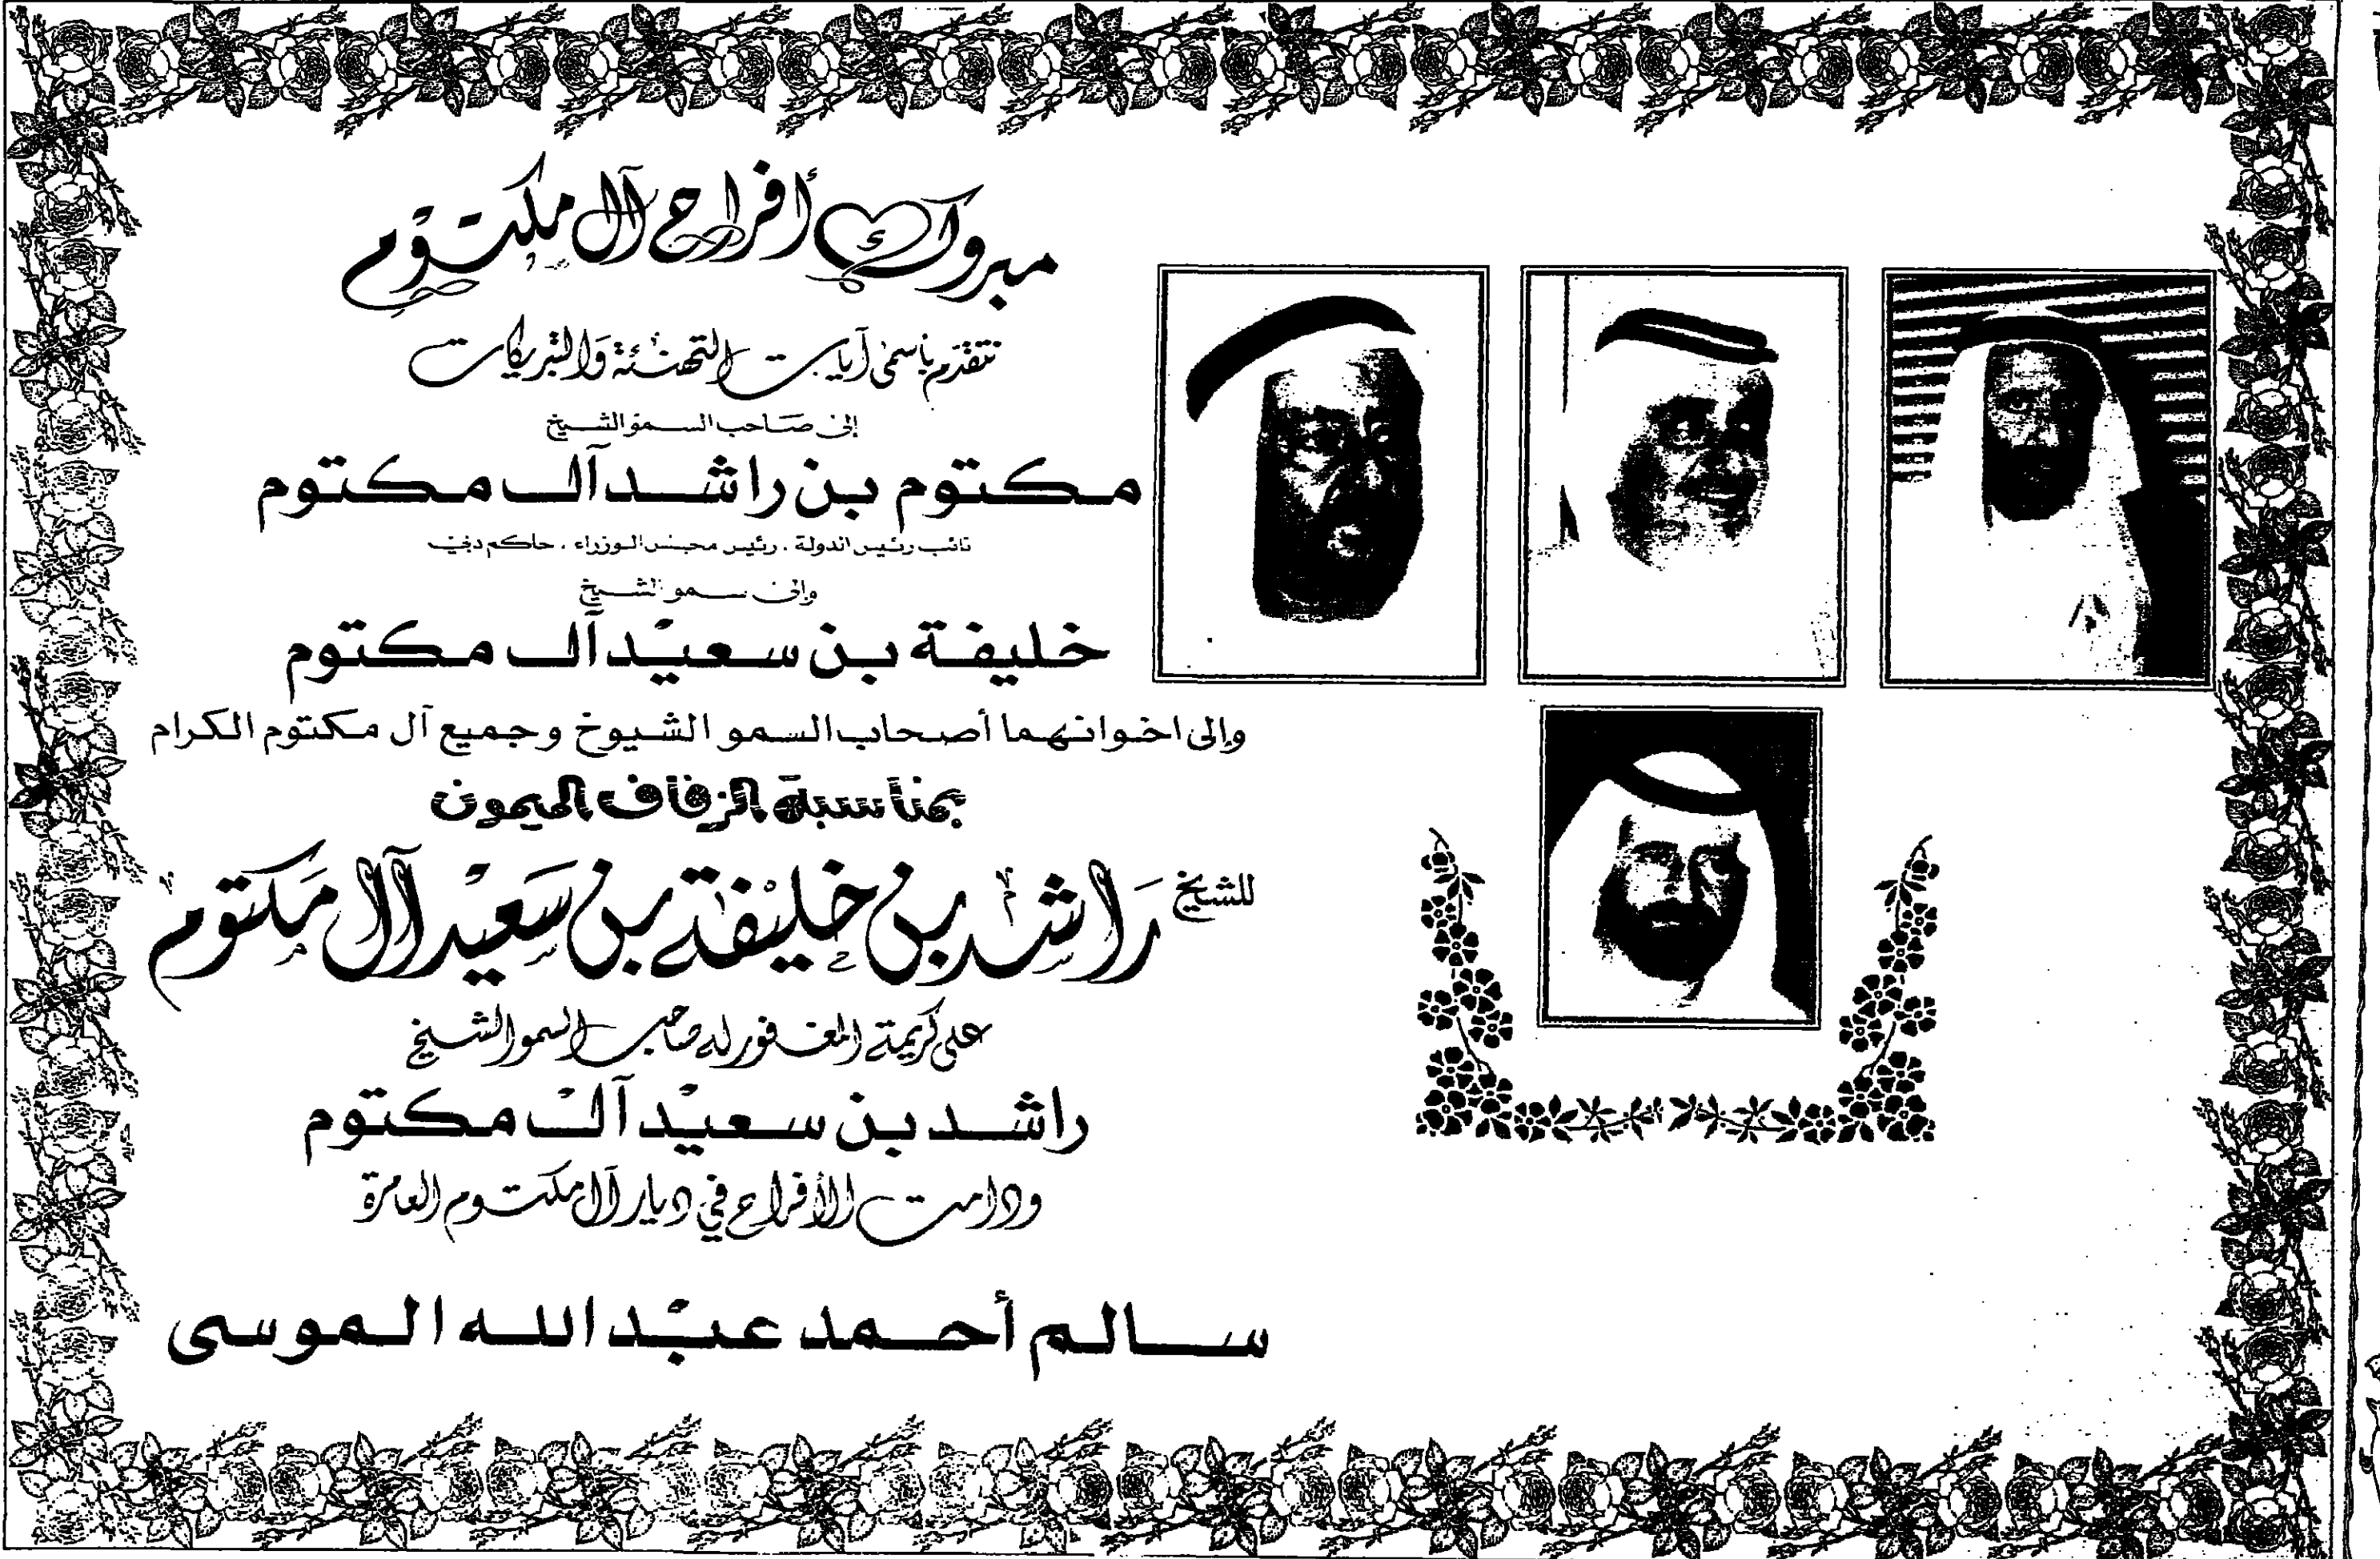 مبروك أفراح آل مكتوم
نتقدم بأسمى آيات التهنئة والتبريكات
إلى صاحب السمو الشيخ
مكتوم بن راشد آل مكتوم
نائب رئيس الدولة ، رئيس مجلس الوزراء ، حاكم دبي
وإلى سمو الشيخ
خليفة بن سعيد آل مكتوم
وإلى اخوانهما أصحاب السمو الشيوخ وجميع آل مكتوم الكرام
بمناسبة الزفاف الميمون
للشيخ راشد بن خليفة بن سعيد آل مكتوم
على كريمة المغفور له صاحب السمو الشيخ
راشد بن سعيد آل مكتوم
ودامت الأفراح في ديار آل مكتوم العامرة
سالم أحمد عبد الله الموسى